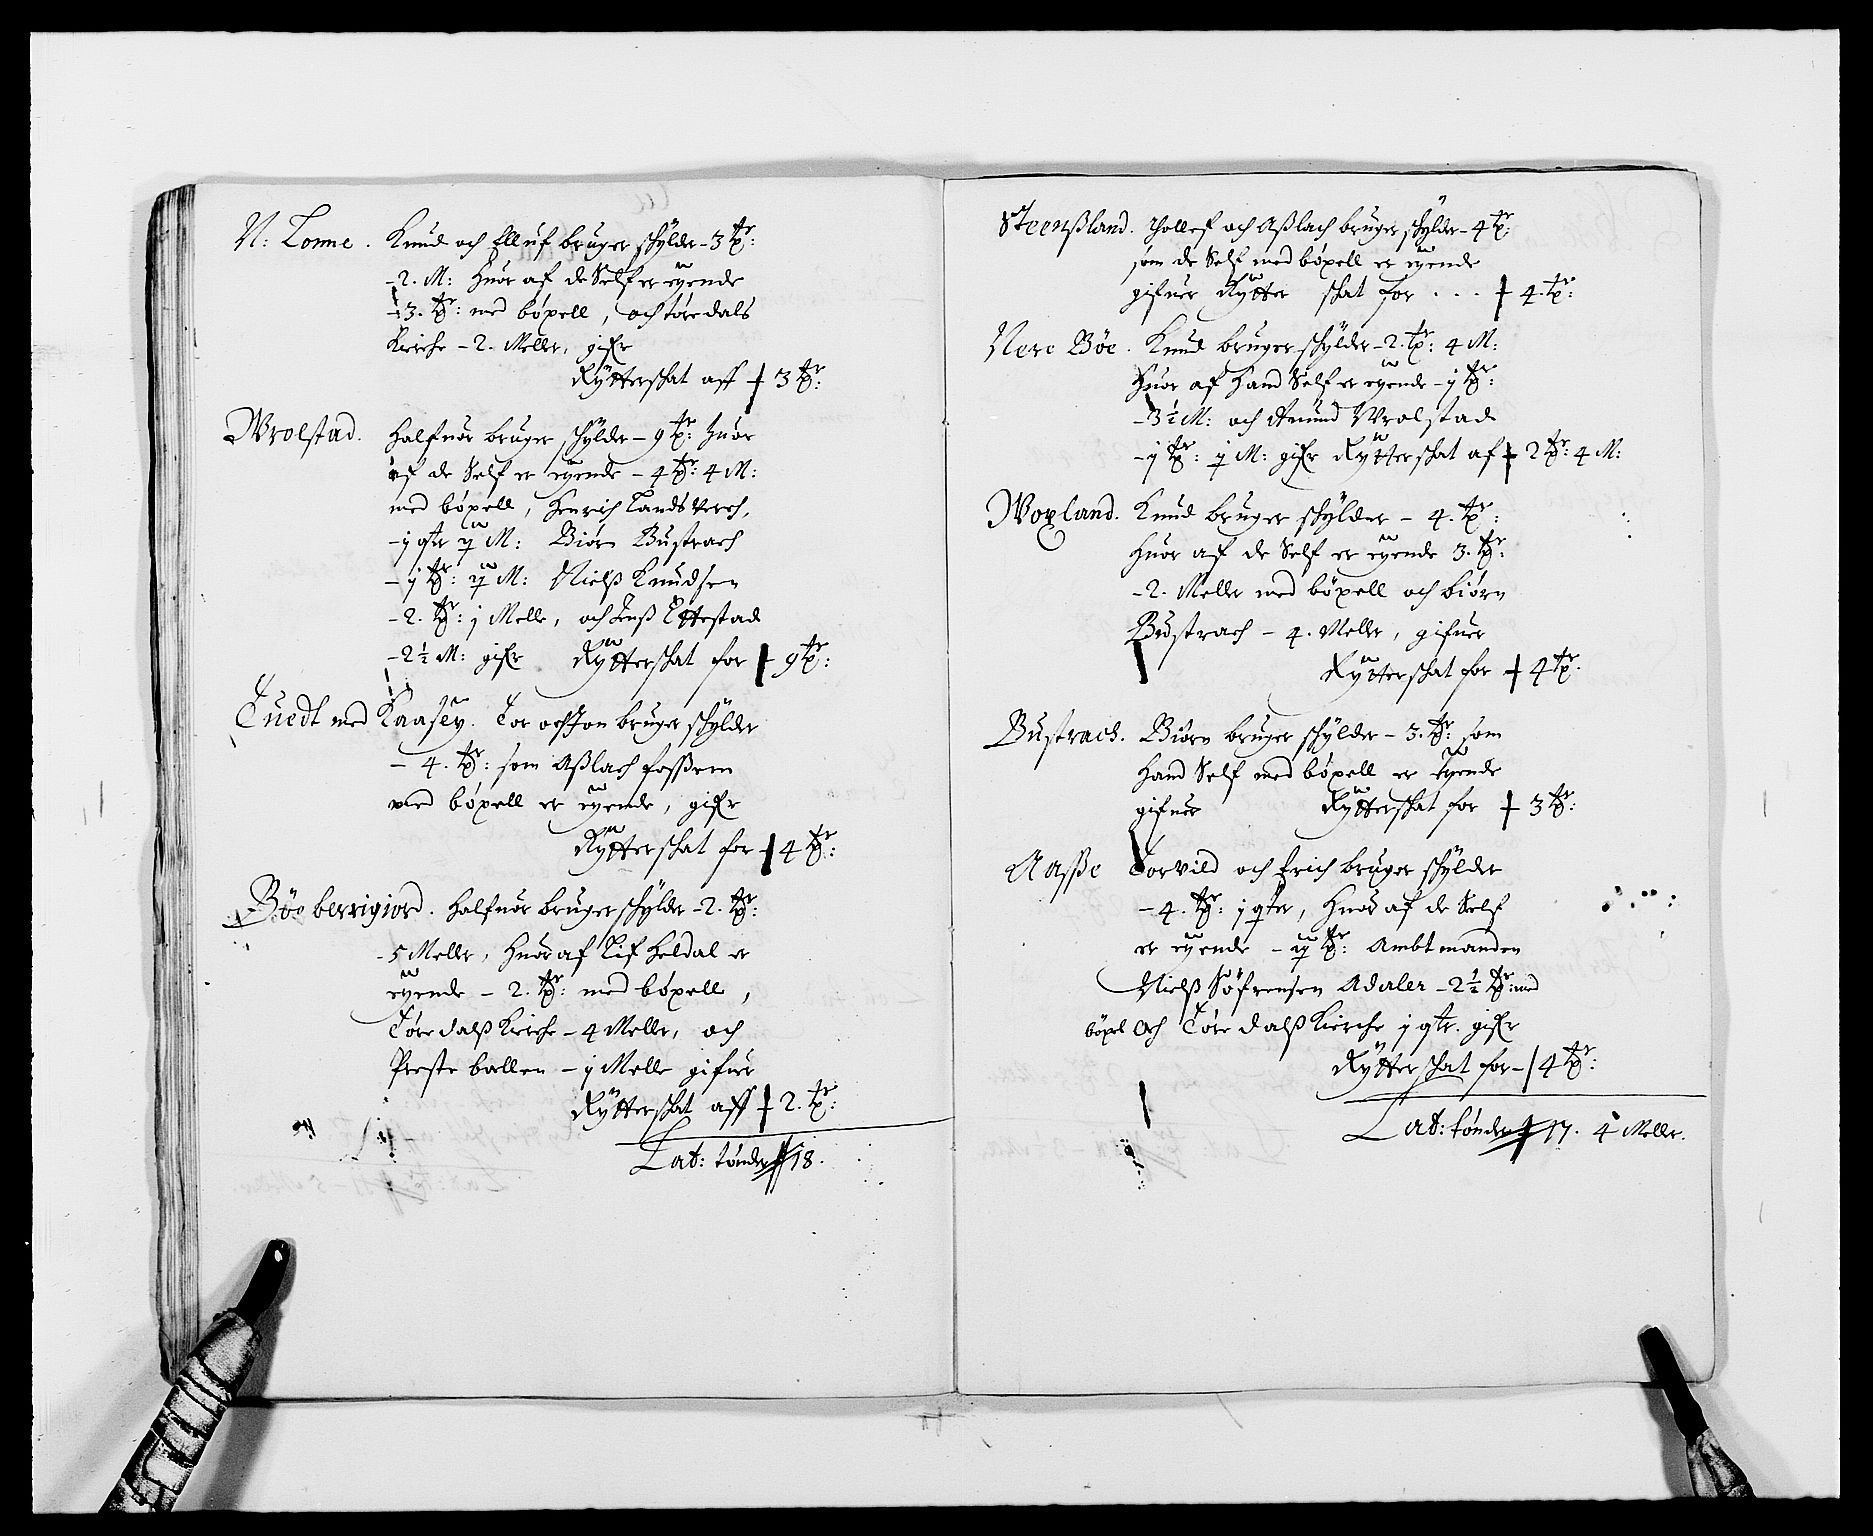 N: Lonne. Knud och Elluf bruger schylder - 3 tr:
- 2. M: Huor af de Self er eyende
- 3. tr: med böxell, och töredals
Kirche - 2. Meller, gifr
Rÿtterschat aff - 3 tr:
Wrolstad. Halfuor bruger schylder - 9 tr: huor
af de Self er eyende - 4 tr: 4 M:
med böxell, Henrich Landsverch,
- j qtr M: Biörn Bustrach
- j tr: M: Nielß Knudsen
- 2. tr: j Melle, och Jenß Ettestad
- 2½ M: gifr Rÿtterschat for - 9 tr:
Tuedt med Kaasey. Tor och Jon bruger schylder
- 4. tr: som Aßlach foßem
med böxell er eyende, gifr
Rÿtterschat for - 4 tr:
Böe berrigiord. Halfuor bruger schylder - 2. tr:
- 5 Meller, Huoraf Lif Heldal er
eyende - 2. tr: med böxell,
Töredalß Kirche - 4 Meller, och
Preste bollen - j Melle gifuer
Rÿtterschat aff - 2. tr:
Lat: tönder 18.
Steenßland. Thollef och Aßlach bruger schylder - 4 tr:
som de Self med böxell er eyende
gifuer Rÿtter schat for . . . - 4. tr:
Nere Böe. Knud bruger schylder - 2. tr: 4 M:
Huor af Hand Self er eyende - j tr:
- 3½ M: och Amund Wrolstad
- j tr: M: gifr Rÿtterschat af - 2 tr: 4 M:
Woxland. Knud bruger schylder - 4. tr:
Huor af de Self er eyende 3. tr:
- 2. Meller med böxell och biörn
Bustrach - 4. Meller, gifuer
Rÿtterschat for - 4 tr.
Bustrach. Biörn bruger schylder - 3. tr: som
Hand Self med böxell er eyende
gifuer Rÿtterschat for - 3 tr:
Aasse Torvild och Erich bruger schylder
- 4. tr: j qter, Huor af de Self
er eyende - tr: Ambtmanden
Nielß Söfrensen Adeler - 2½ tr: med
böxel och Töredalß Kierche j qtr. gifr
Rÿtterschat for - 4 tr:
Lat: tönder 17. 4 Meller.